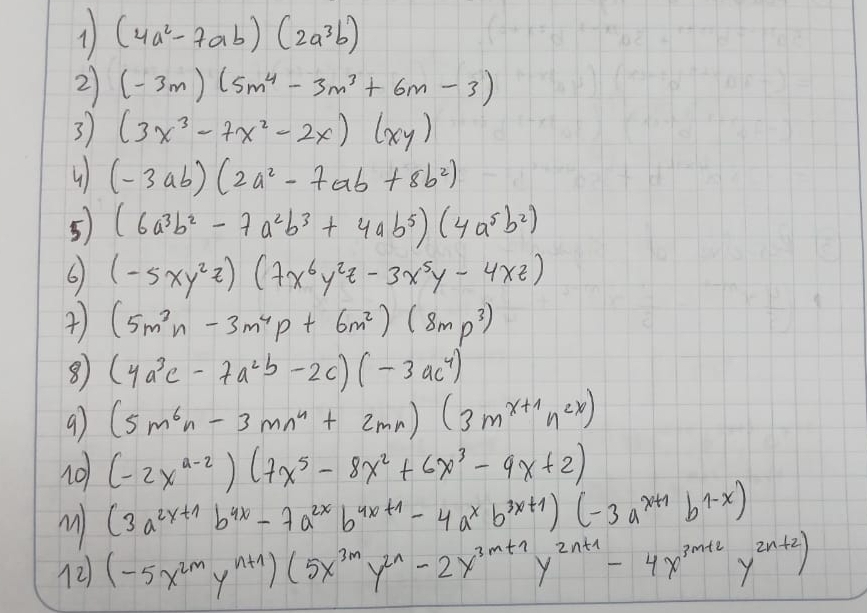 1) (4a² - 7ab) (2a³b)
2) (-3m) (5m⁴ - 3m³ + 6m - 3)
3) (3x³ - 7x² - 2x) (xy)
4) (-3ab) (2a² - 7ab + 8b²)
5) (6a³b² - 7a²b³ + 4ab⁵) (4a⁵b²)
6) (-5xy²z) (7x⁶y²z - 3x⁵y - 4xz)
7) (5m³n - 3m⁴p + 6m²) (8mp³)
8) (4a³c - 7a²b - 2c) (-3ac⁴)
9) (5m⁶n - 3mn⁴ + 2mn) (3m^{x+1} n^{2x})
10) (-2x^{a-2}) (7x⁵ - 8x² + 6x³ - 9x + 2)
11) (3a^{2x+1} b^{4x} - 7a^{2x} b^{4x+1} - 4a^{x} b^{3x+1}) (-3a^{x+1} b^{1-x})
12) (-5x^{2m} y^{n+1}) (5x^{3m} y^{2n} - 2x^{3m+1} y^{2n+1} - 4x^{3m+2} y^{2n+2})